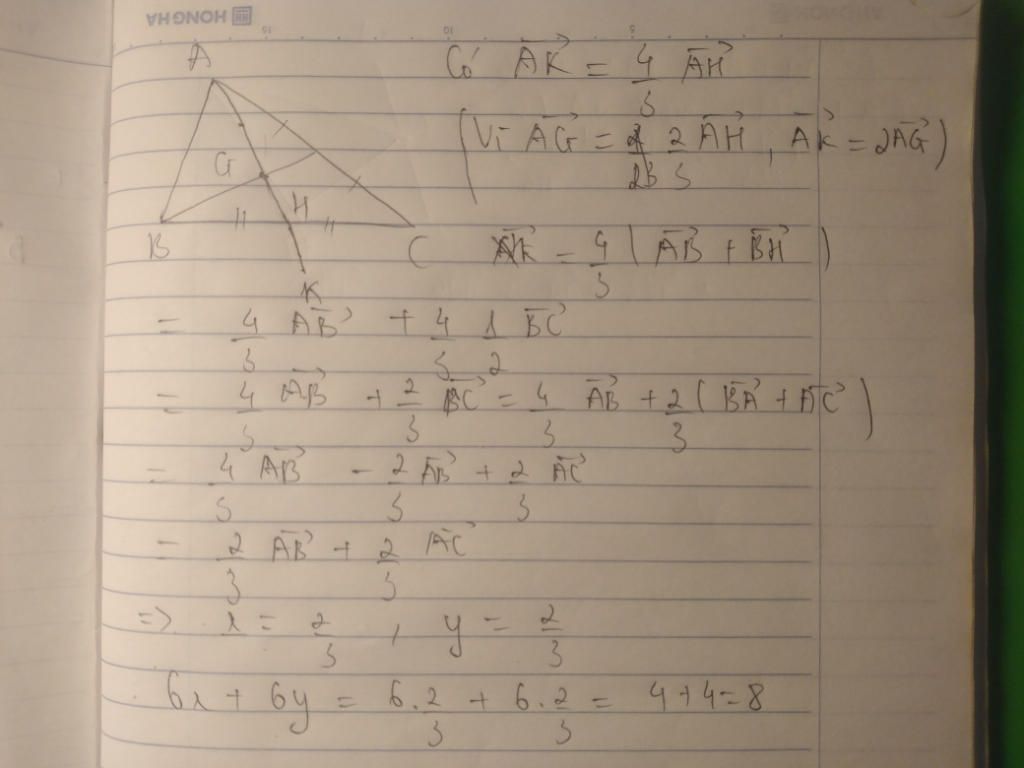 HONG HA
15 10 5
A
Có AK⃗ = 4/3 AH⃗
(Vì AG⃗ = 2/3 AH⃗, AK⃗ = 2AG⃗)
G
H
B C
K
AK⃗ = 4/3 (AB⃗ + BH⃗)
= 4/3 AB⃗ + 4/3 1/2 BC⃗
= 4/3 AB⃗ + 2/3 BC⃗ = 4/3 AB⃗ + 2/3 (BA⃗ + AC⃗)
= 4/3 AB⃗ - 2/3 AB⃗ + 2/3 AC⃗
= 2/3 AB⃗ + 2/3 AC⃗
=> x = 2/3, y = 2/3
6x + 6y = 6.2/3 + 6.2/3 = 4+4=8